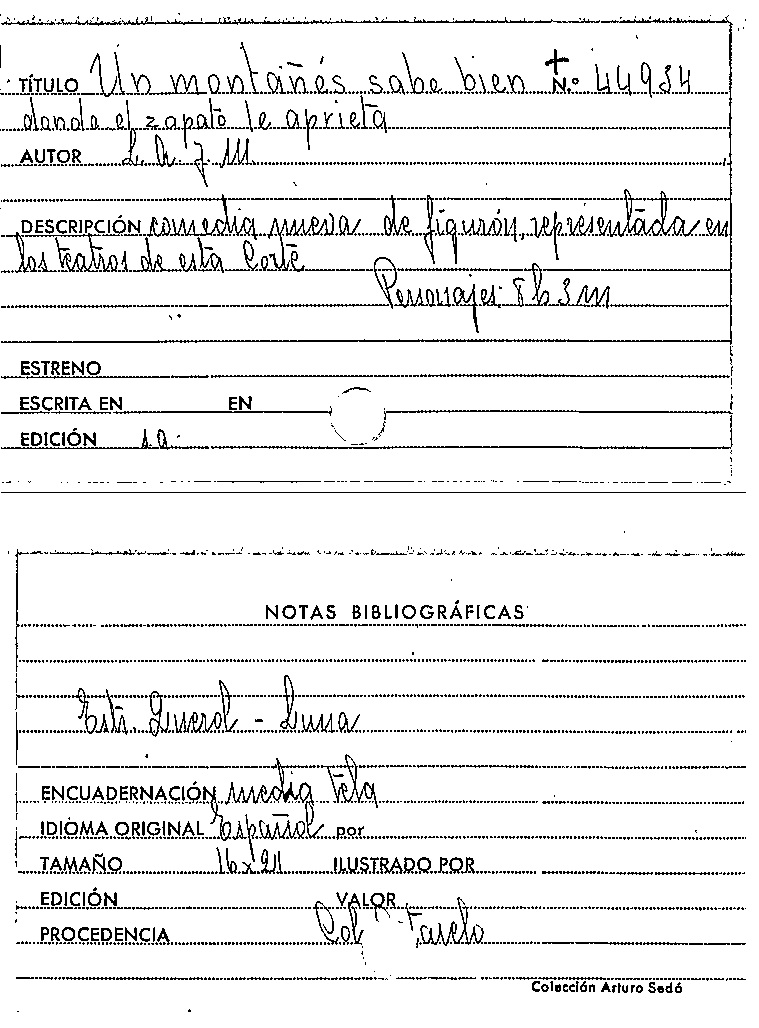 TÍTULO Un montañés sabe bien N.º 44934
donde el zapato le aprieta
AUTOR L. A. J. M
DESCRIPCIÓN comedia nueva de figurón, representada en
los teatros de esta Corte
Personajes: 8 h 3 m
ESTRENO
ESCRITA EN EN
EDICIÓN s.a.
NOTAS BIBLIOGRÁFICAS
Luna
ENCUADERNACIÓN media tela
IDIOMA ORIGINAL Español por
TAMAÑO 16x21 ILUSTRADO POR
EDICIÓN VALOR
PROCEDENCIA Col
Colección Arturo Sedó